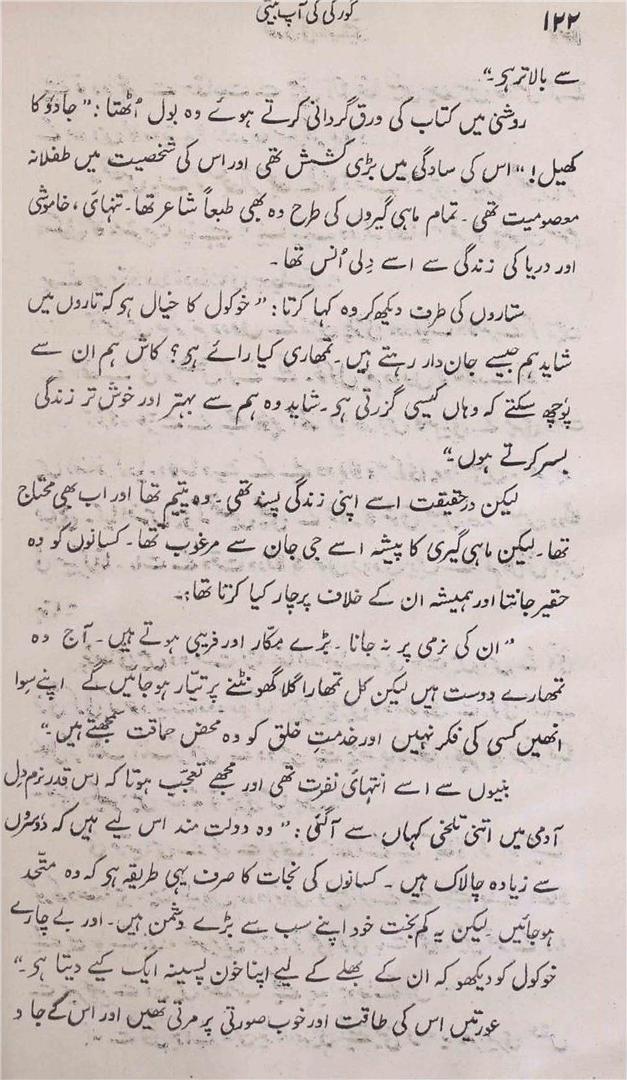 ۱۲۲
گورکی کی آپ بیتی
سے بالاتر ہو۔“
روشنی میں کتاب کی ورق گردانی کرتے ہوئے وہ بول اُٹھتا: ”جادوٗ کا
کھیل!“ اس کی سادگی میں بڑی کشش تھی اور اس کی شخصیت میں طفلانہ
معصومیت تھی۔ تمام ماہی گیروں کی طرح وہ بھی طبعاً شاعر تھا۔ تنہائی، خاموشی
اور دریا کی زندگی سے اسے دِلی اُنس تھا۔
ستاروں کی طرف دیکھ کر وہ کہا کرتا: ”خوکول کا خیال ہو کہ تاروں میں
شاید ہم جیسے جان دار رہتے ہیں۔ تمھاری کیا رائے ہو؟ کاش ہم ان سے
پوٗچھ سکتے کہ وہاں کیسی گزرتی ہو۔ شاید وہ ہم سے بہتر اور خوش تر زندگی
بسر کرتے ہوں۔“
لیکن درحقیقت اسے اپنی زندگی پسند تھی۔ وہ یتیم تھا اور اب بھی محتاج
تھا۔ لیکن ماہی گیری کا پیشہ اسے جی جان سے مرغوب تھا۔ کسانوں کو وہ
حقیر جانتا اور ہمیشہ ان کے خلاف پرچار کیا کرتا تھا:۔
”ان کی نرمی پر نہ جانا۔ بڑے مکّار اور فریبی ہوتے ہیں۔ آج وہ
تمھارے دوست ہیں لیکن کل تمھارا گلا گھونٹنے پر تیّار ہوجائیں گے اپنے سِوا
انھیں کسی کی فکر نہیں اور خدمتِ خلق کو وہ محض حماقت سمجھتے ہیں۔“
بنیوں سے اسے انتہائی نفرت تھی اور مجھے تعجّب ہوتا کہ اس قدر نرم دِل
آدمی میں اتنی تلخی کہاں سے آگئی: ”وہ دولت مند اس لیے ہیں کہ دوٗسروں
سے زیادہ چالاک ہیں۔ کسانوں کی نجات کا صرف یہی طریقہ ہو کہ وہ متّحد
ہوجائیں۔ لیکن یہ کم بخت خود اپنے سب سے بڑے دشمن ہیں۔ اور بے چارے
خوکول کو دیکھو کہ ان کے بھلے کے لیے اپنا خون پسینہ ایک کیے دیتا ہو۔“
عورتیں اس کی طاقت اور خوب صورتی پر مرتی تھیں اور اس کے جا و